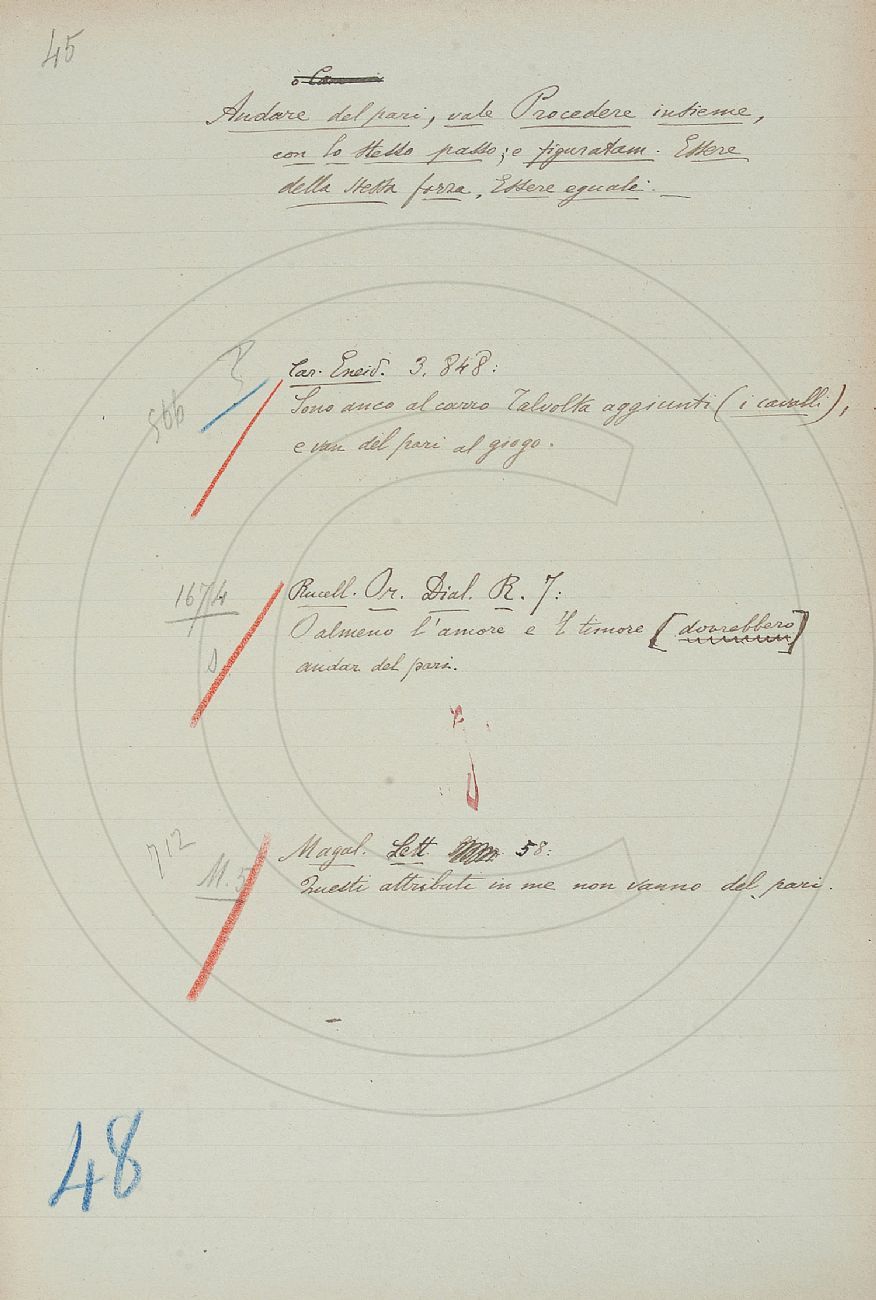 45
Andare del pari, vale Procedere insieme,
con lo stesso passo; e figuratam. Essere
della stessa forza, Essere eguale.
Car. Eneid. 3. 848:
566
Sono anco al carro talvolta aggiunti (i cavalli),
e van del pari al giogo.
1674
Rucell. Or. Dial. R. 7:
O almeno l'amore e 'l timore [dovrebbero]
andar del pari.
712
Magal. Lett. 58:
M. 5
Questi attributi in me non vanno del pari.
48